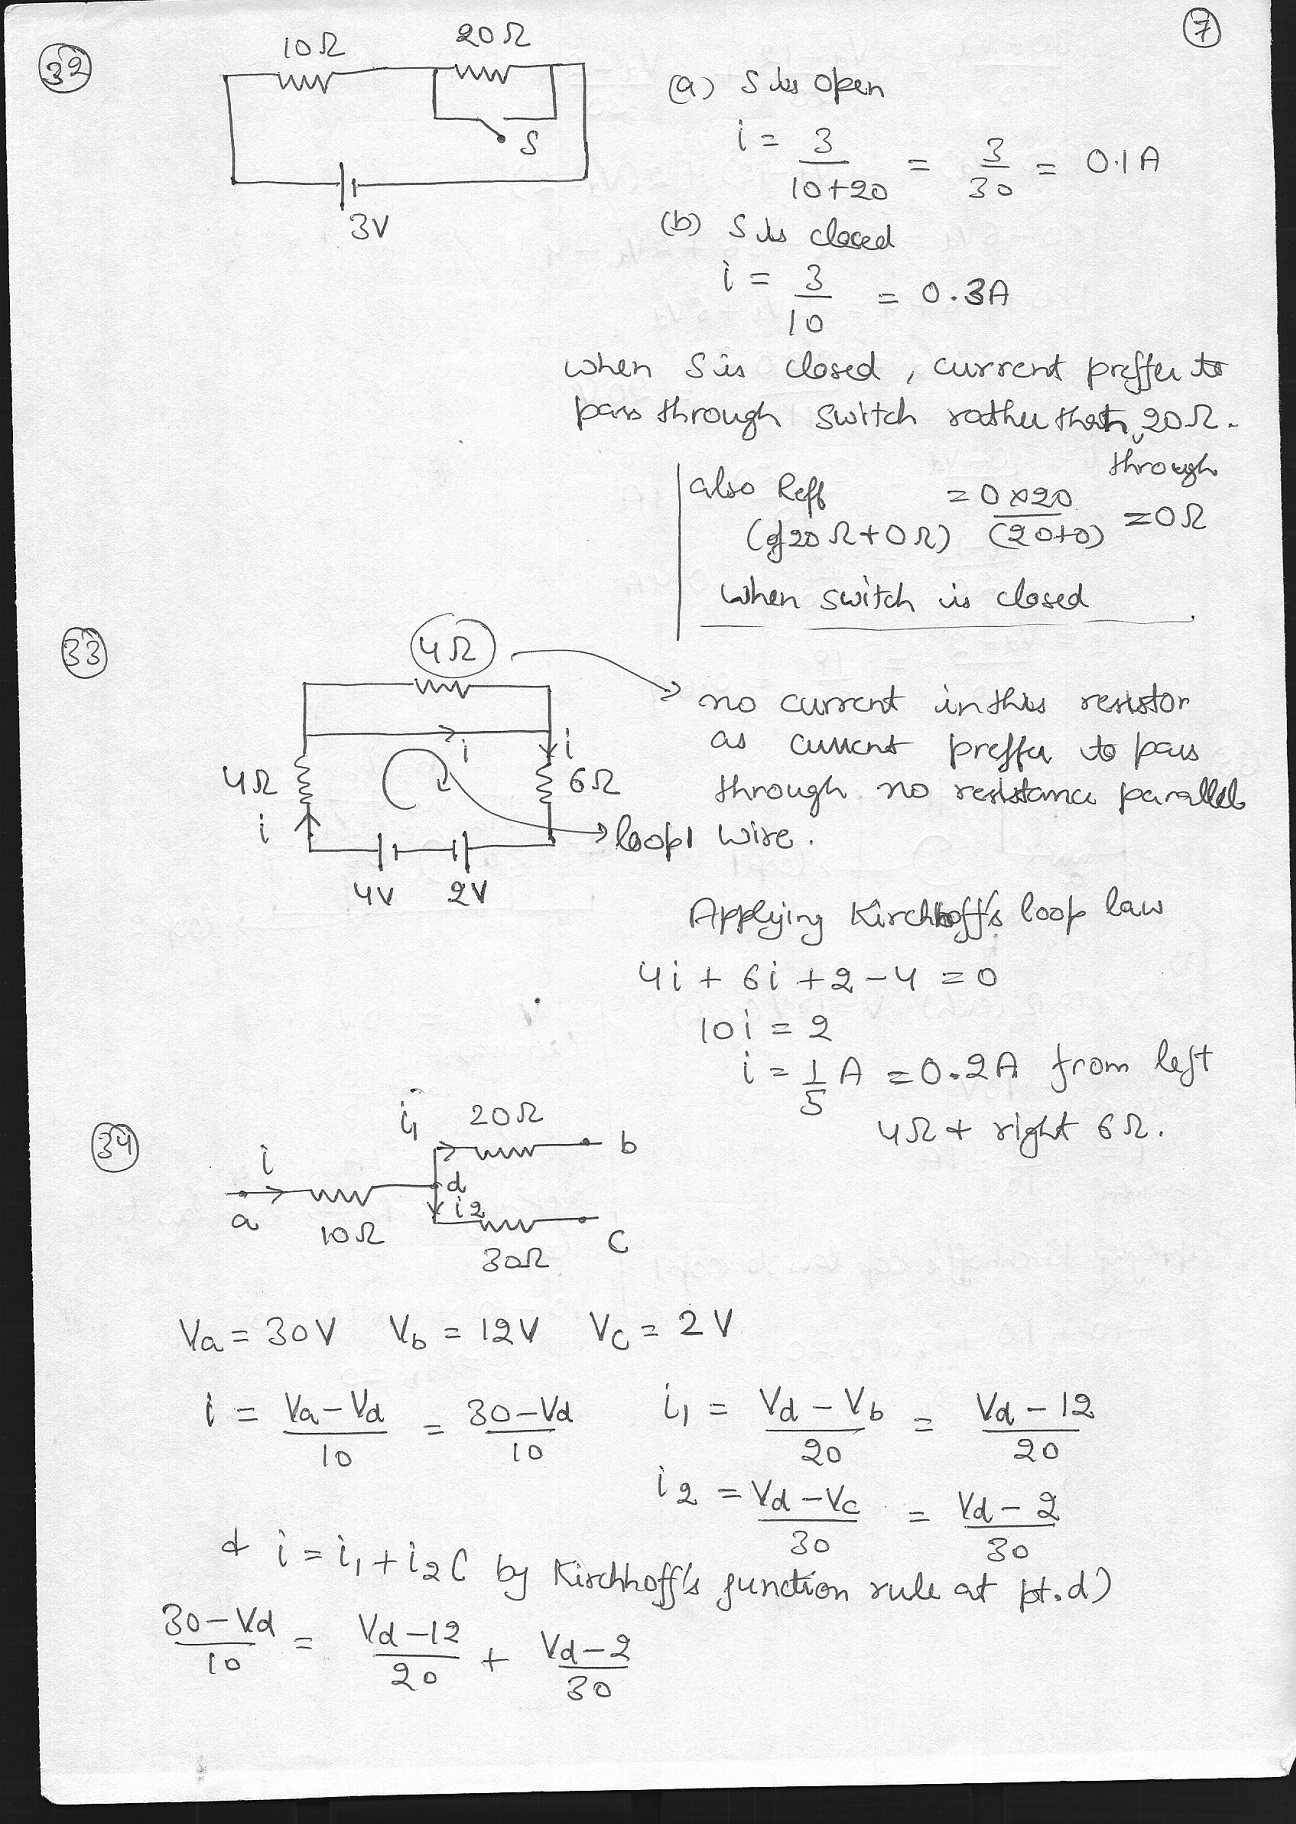 7
32
10Ω
20Ω
S
3V
(a) S is open
i = 3/(10+20) = 3/30 = 0.1A
(b) S is closed
i = 3/10 = 0.3A
when S is closed, current preffer to
pass through switch rather than through 20Ω.
also Reff (of 20Ω + 0Ω) = 0×20/(20+0) = 0Ω
when switch is closed
33
4Ω
no current in this resistor
as current preffer to pass
through no resistance parallel
wire.
loop 1
4Ω
i
i
i
6Ω
4V
2V
Applying Kirchhoff's loop law
4i + 6i + 2 - 4 = 0
10i = 2
i = 1/5 A = 0.2A from left
4Ω + right 6Ω.
34
i
a
10Ω
d
i1
20Ω
b
i2
30Ω
C
Va = 30V Vb = 12V Vc = 2V
i = (Va - Vd)/10 = (30 - Vd)/10
i1 = (Vd - Vb)/20 = (Vd - 12)/20
i2 = (Vd - Vc)/30 = (Vd - 2)/30
+ i = i1 + i2 ( by Kirchhoff's junction rule at pt. d)
(30 - Vd)/10 = (Vd - 12)/20 + (Vd - 2)/30